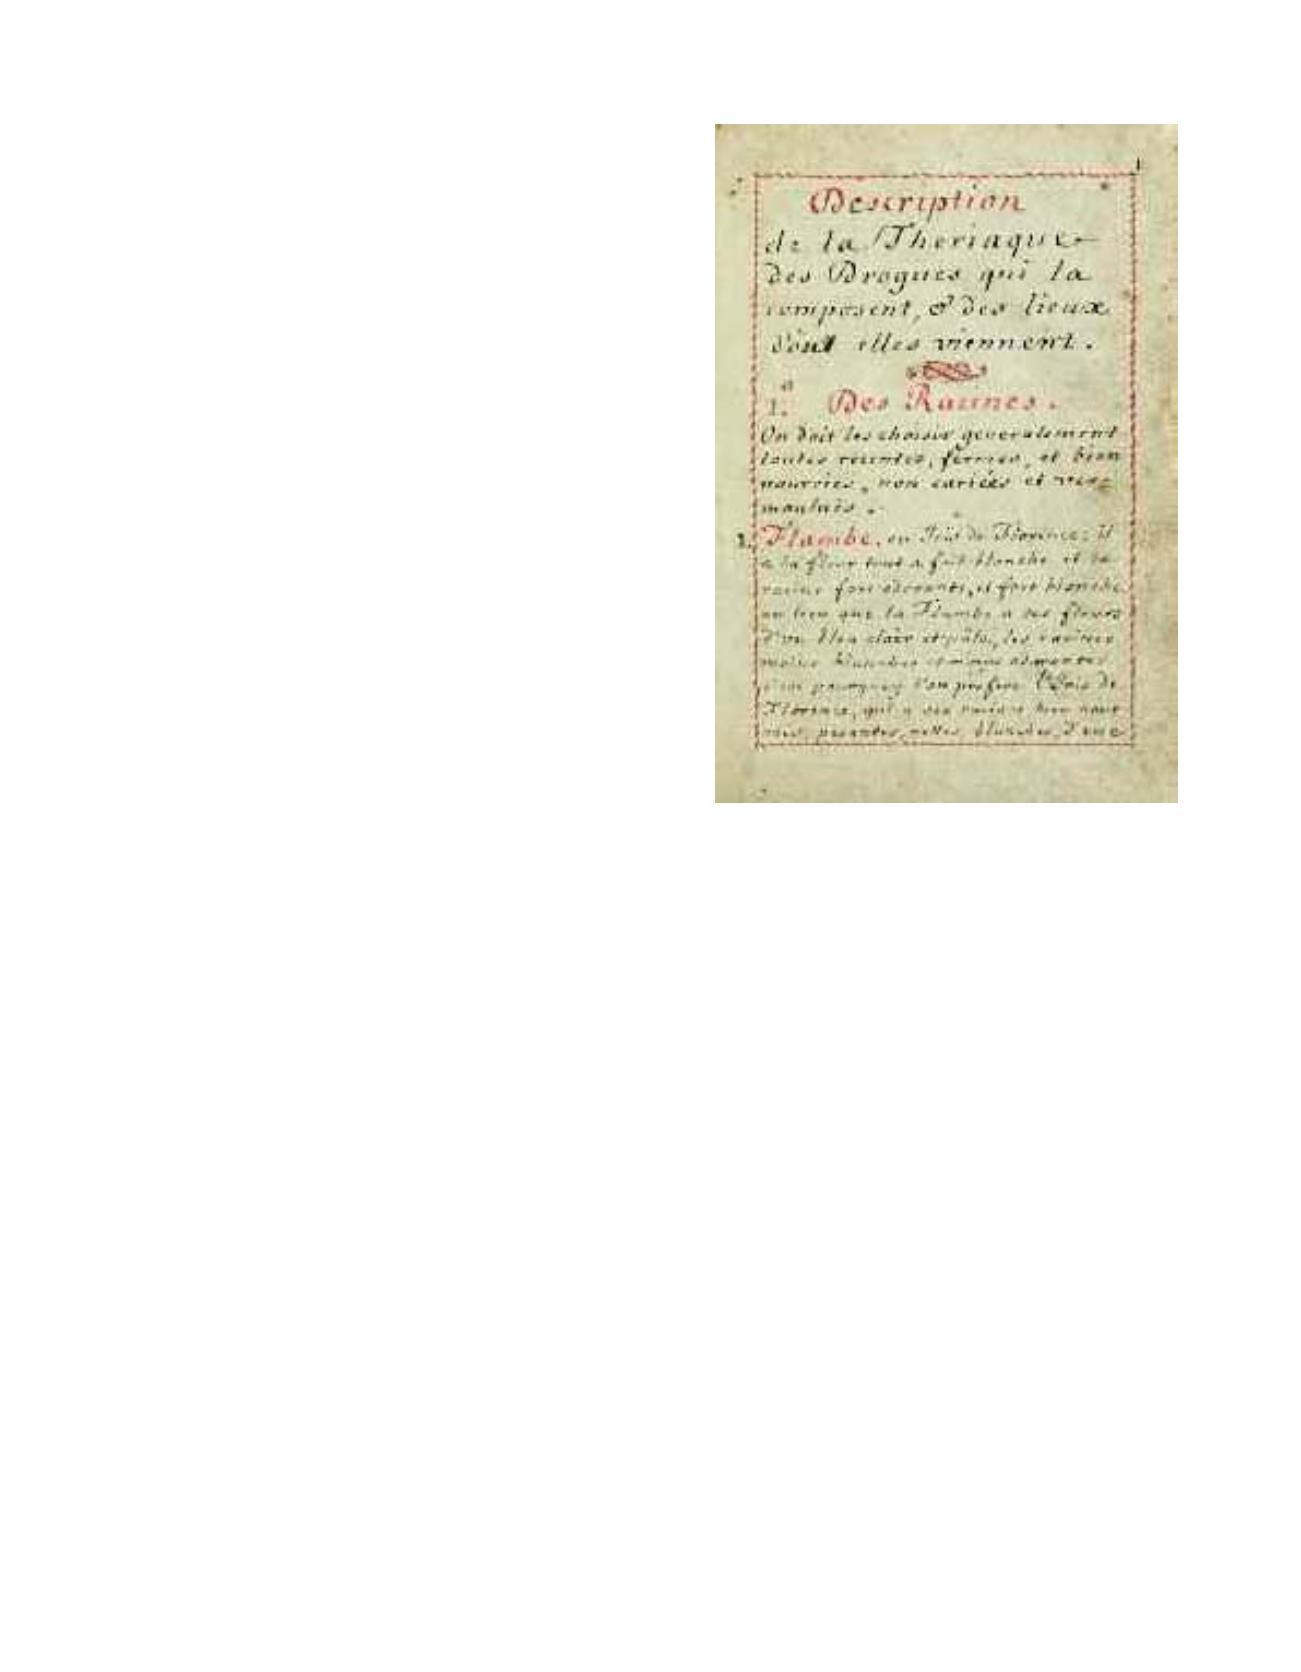 1
Description
de la Theriaque
des Drogues qui la
composent, & des lieux
d'ont elles viennent.
1.º Des Racines.
On doit les choisir generalement
toutes recentes, fermes, et bien
nourries, non cariées et ver=
moulues.
1. Flambe, ou Iris de Florence; il
a la fleur tout a fait blanche et la
racine fort odorante, et fort blanche
au lieu que la Flambe a ses fleurs
d'un bleu clair et pâle, les racines
moins blanches et moins odorantes
c'est pourquoy l'on prefere l'Iris de
Florence, qui a ses racines bien nour
ries, pesantes, nettes, blanches, d'une